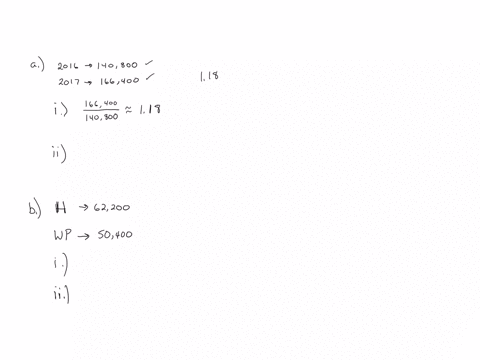 a.) 2016 → 140,800 ✓
2017 → 166,400 ✓
1.18
i.) 166,400/140,800 ≈ 1.18
ii)
b.) H → 62,200
WP → 50,400
i.)
ii.)